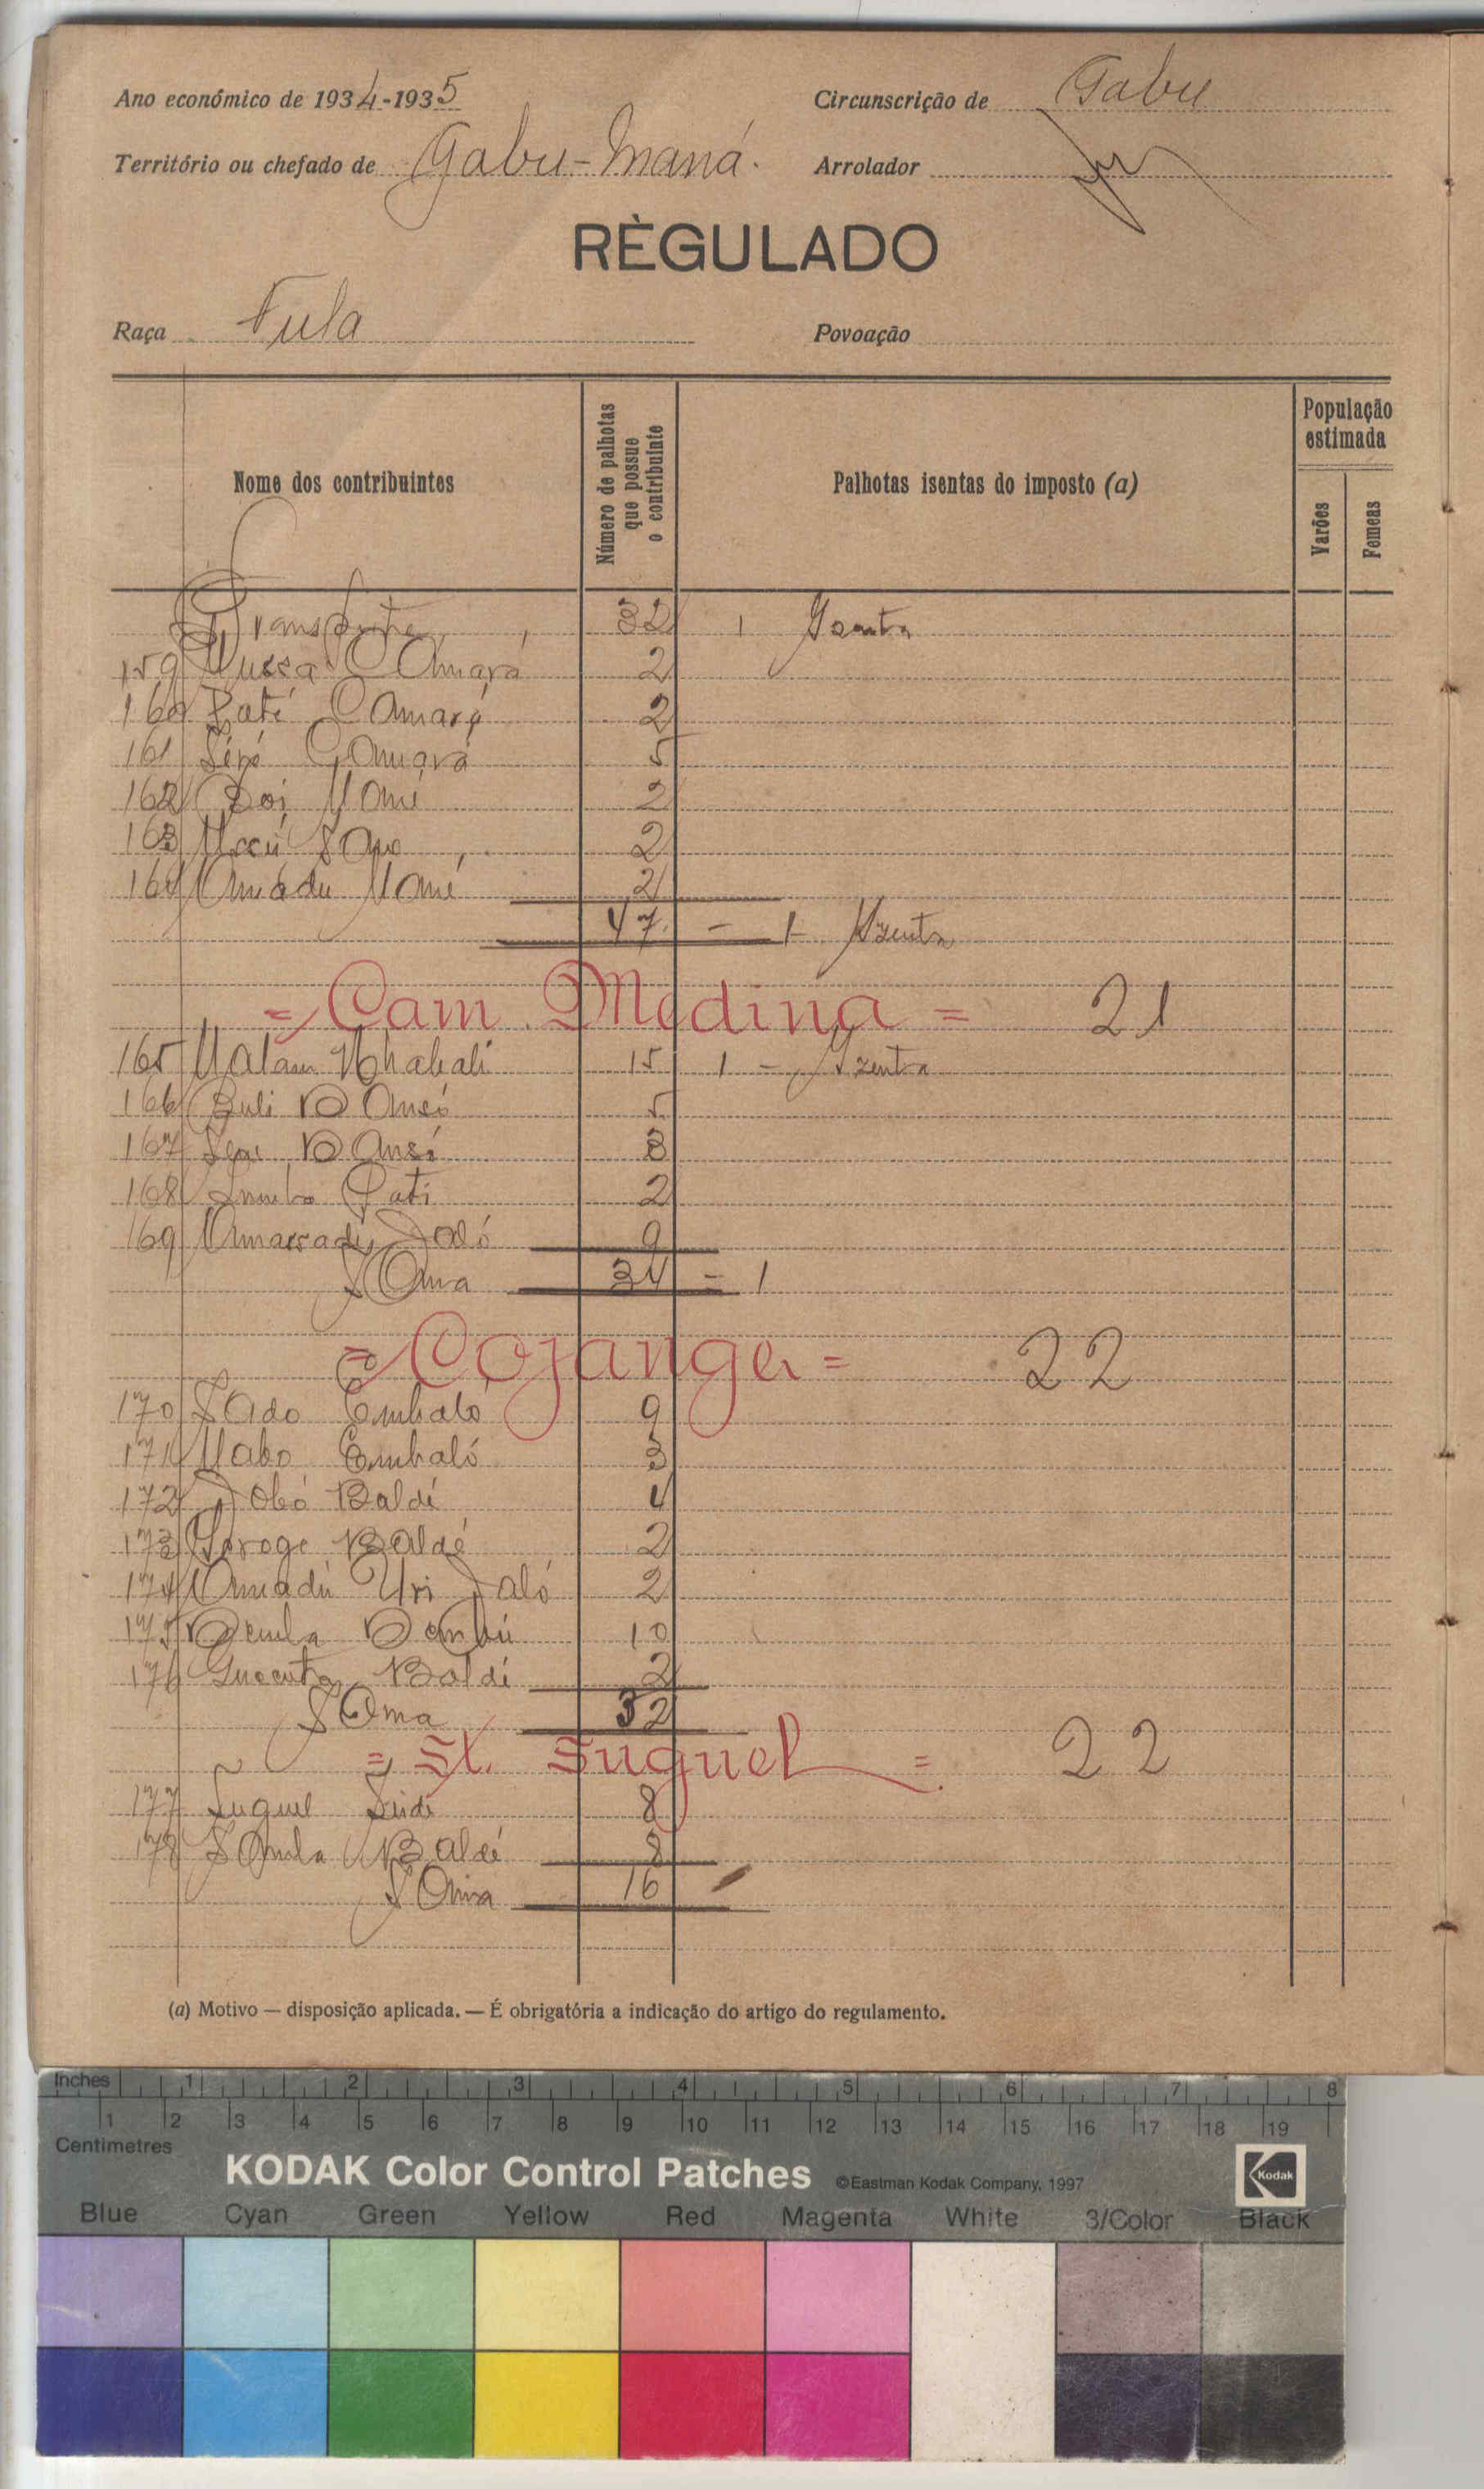 Ano económico de 1934-1935
Circunscrição de Gabu
Território ou chefado de Gabu-Maná.
Arrolador
RÈGULADO
Raça Fula
Povoação
Nome dos contribuintes
Número de palhotas que possue o contribuinte
Palhotas isentas do imposto (a)
População estimada
Varões
Femeas
Transporte 32 1 Izenta
159 Mussa Camará 2
160 Paté Camará 2
161 Camará 5
162 Mané 2
163 2
164 Amadu Mané 2
47 - 1 - Izenta
= Cam. Medina = 21
165 Malam 15 1 - Izenta
166 Buli Dansó 5
167 Dansó 3
168 Pati 2
169 Jaló 9
Soma 34 = 1
= Cojanger = 22
170 Sado Embaló 9
171 Embaló 3
172 Baldé 4
173 Baldé 2
174 Amadú Uri Jaló 2
175 Demba 10
176 Baldé 2
Soma 32
= St. Suguel = 22
177 Suguel Seidi 8
178 Samba Baldé 8
Soma 16
(a) Motivo — disposição aplicada. — É obrigatória a indicação do artigo do regulamento.
Inches 1 2 3 4 5 6 7 8
1 2 3 4 5 6 7 8 9 10 11 12 13 14 15 16 17 18 19
Centimetres
KODAK Color Control Patches ©Eastman Kodak Company, 1997 Kodak
Blue Cyan Green Yellow Red Magenta White 3/Color Black